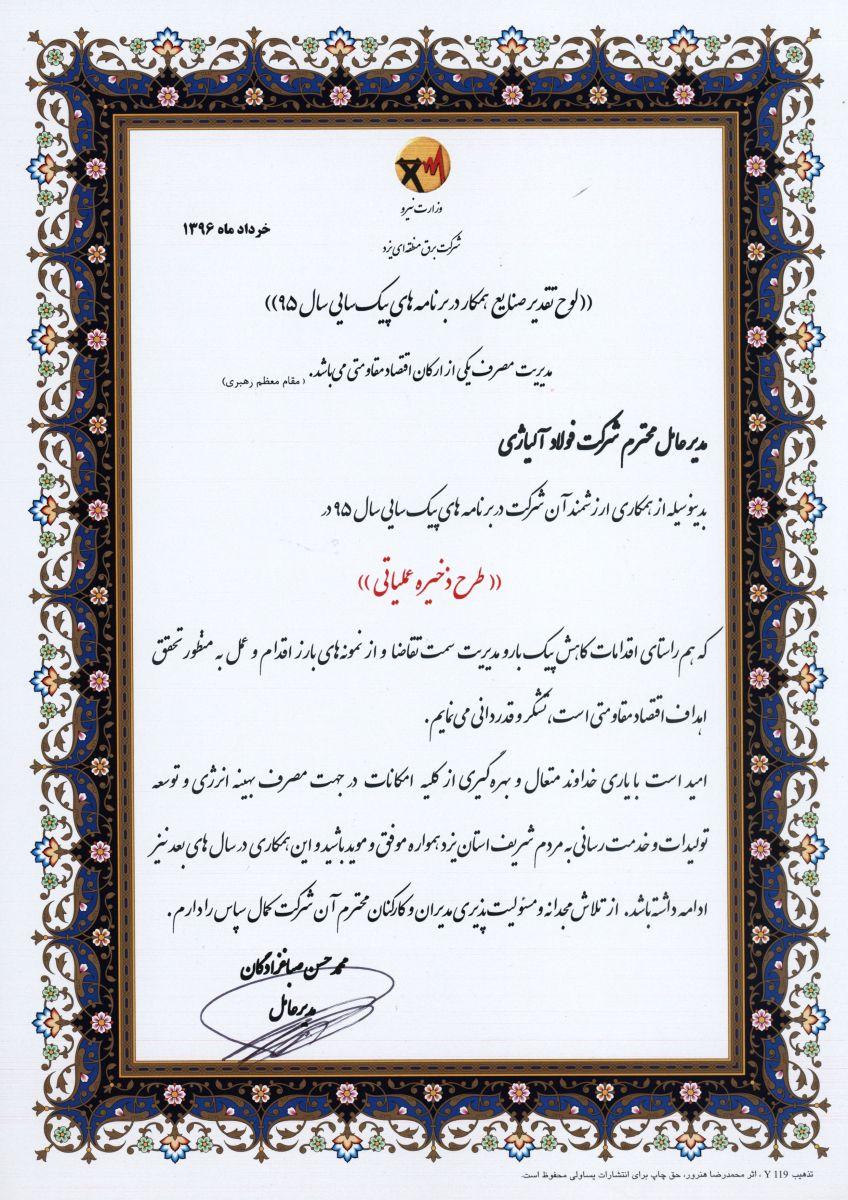 وزارت نیرو
خرداد ماه ۱۳۹۶
شرکت برق منطقه ای یزد
((لوح تقدیر صنایع همکار در برنامه های پیک سایی سال ۹۵))
مدیریت مصرف یکی از ارکان اقتصاد مقاومتی می باشد. (مقام معظم رهبری)
مدیر عامل محترم شرکت فولاد آلیاژی
بدینوسیله از همکاری ارزشمند آن شرکت در برنامه های پیک سایی سال ۹۵ در
(( طرح ذخیره عملیاتی ))
که هم راستای اقدامات کاهش پیک بار و مدیریت سمت تقاضا و از نمونه های بارز اقدام و عمل به منظور تحقق
اهداف اقتصاد مقاومتی است، تشکر و قدردانی می نمایم.
امید است با یاری خداوند متعال و بهره گیری از کلیه امکانات در جهت مصرف بهینه انرژی و توسعه
تولیدات و خدمت رسانی به مردم شریف استان یزد همواره موفق و موید باشید و این همکاری در سال های بعد نیز
ادامه داشته باشد. از تلاش مجدانه و مسئولیت پذیری مدیران و کارکنان محترم آن شرکت کمال سپاس را دارم.
محمد حسن صباغزادگان
مدیر عامل
تذهیب Y 119 ، اثر محمدرضا هنرور، حق چاپ برای انتشارات یساولی محفوظ است.